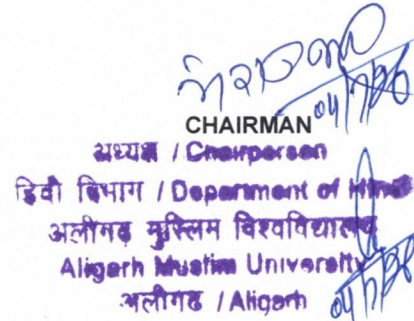 CHAIRMAN
अध्यक्ष / Chairperson
हिंदी विभाग / Department of Hindi
अलीगढ़ मुस्लिम विश्वविद्यालय
Aligarh Muslim University
अलीगढ़ / Aligarh